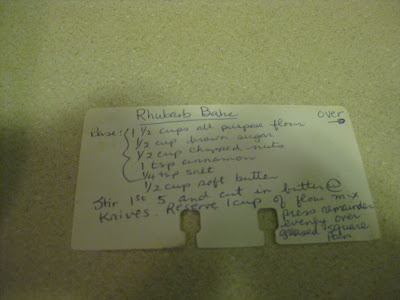 Rhubarb Bake
over →
Base: 1 1/2 cups all purpose flour
1/2 cup brown sugar
1/2 cup chopped nuts
1 tsp cinnamon
1/4 tsp salt
1/2 cup soft butter
Stir 1st 5 and cut in butter
knives. Reserve 1 cup of flour mix
press remainder
evenly over
greased square
pan